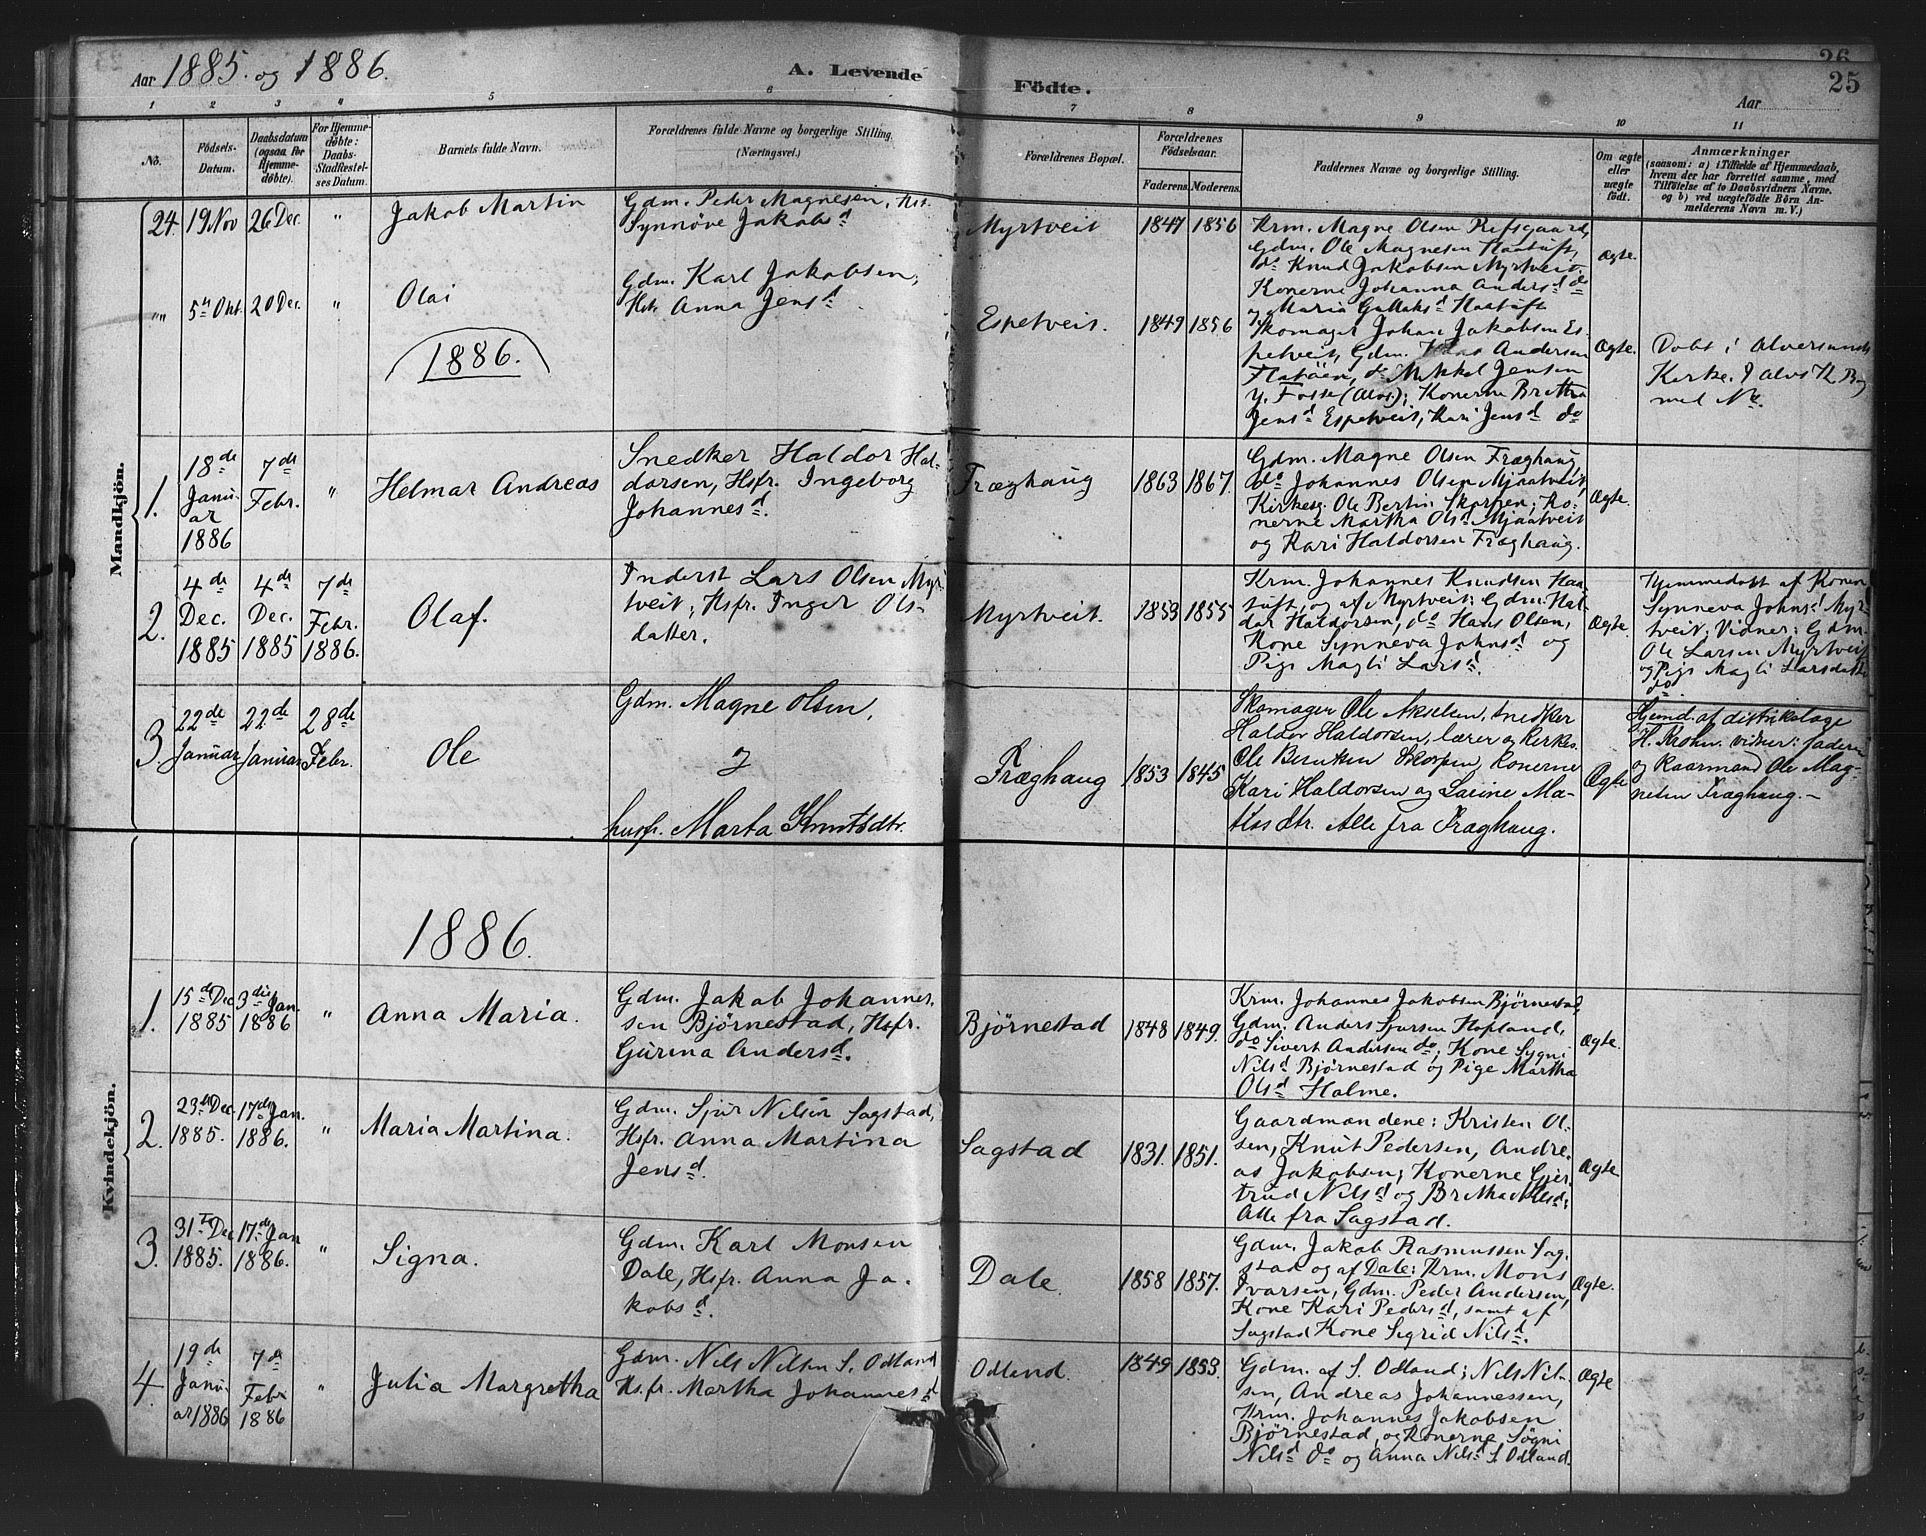 Aar 1885. og 1886.
A. Levende Födte.
Aar
26
25
1 2 3 4 5 6 7 8 9 10 11
No.
Födsels-Datum.
Daabsdatum (ogsaa for Hjemme-døbte).
For Hjemme-døbte: Daabs-Stadfæstel-ses Datum.
Barnets fulde Navn.
Forældrenes fulde Navne og borgerlige Stilling.
(Næringsvei.)
Forældrenes Bopæl.
Forældrenes Födselsaar.
Faderens. Moderens.
Faddernes Navne og borgerlige Stilling.
Om ægte eller uægte födt.
Anmærkninger
(saasom: a) i Tilfælde af Hjemmedaab,
hvem der har forrettet samme, med
Tilföielse af to Daabsvidners Navne.
og b) ved uægtefödte Börn An-
melderens Navn m. V.)
Mandkjön.
24. 19 Nov 26 Dec. " Jakob Martin
Gdm. Peder Magnesen, Hst.
Synnöve Jakobsd
Myrtveit 1847 1856
Krm. Magne Olsen Refsgaard,
Gdm. Ole Magnesen Haatuft,
do Knud Jakobsen Myrtveit.
Konerne Johanna Andersd do
Maria Haatuft
Ægte.
" 5te Okt. 20 Dec. " Olai
Gdm. Karl Jakobsen,
Hst. Anna Jensd.
Espetveit. 1849 1856
Skomager Johan Jakobsen Es-
petveit, Gdm. Andersen
Flatöen, do Mikkel Jensen
y. Fosse (Alv.); Konerne Brettha
Jensd Espetveit, Kari Jensd do
Ægte.
Dobt i Alversunds
Kirke.
med No.
1886.
1. 18de Janu-ar 1886 7de Febr. " Helmar Andreas
Snedker Haldor Hal-
dorsen, Hsfr. Ingeborg
Johannesd.
Fræghaug 1863 1867.
Gdm. Magne Olsen Fræghaug,
do Johannes Olsen Mjaatveit,
Kirkesg. Ole Bertin Skorpen; Ko-
nerne Martha Olsd Mjaatveit
og Kari Haldorsen Fræghaug.
Ægte.
2. 4de Dec. 1885 4de Dec. 1885 7de Febr. 1886. Olaf.
Inderst Lars Olsen Myr-
tveit; Hsfr. Inger Ols-
datter.
Myrtveit. 1853 1855
Krm. Johannes Knudsen Haa-
tuft, og af Myrtveit: Gdm. Hal-
dor Haldorsen, do Hans Olsen,
Kone Synneva Johnsd og
Pige Magli Larsd.
Ægte.
Hjemmedobt af Konen
Synneva Johnsd Myr-
tveit; Vidner: Gdm.
Ole Larsen Myrtveit
og Pige Magli Larsdatter
do
3. 22de Januar 22de Januar 28de Febr. Ole
Gdm. Magne Olsen,
og
husfr. Marta Knutsdtr.
Fræghaug 1853 1845
Skomager Ole Akselsen, snedker
Haldor Haldorsen, lærer og Kirkes.
Ole Skorpen, Konerne
Kari Haldorsen og Larine Ma-
thias dtr. Alle fra Fræghaug.
Ægte
Hjemd. af distrikslæge
H. Krohn. vidner: faderen
og Kaarmand Ole Mag-
nesen Fræghaug.-
Kvindekjön.
1886.
1. 15de Dec. 1885 3die Jan. 1886 " Anna Maria.
Gdm. Jakob Johannes-
sen Bjørnestad, Hsfr.
Gurina Andersd.
Bjørnestad 1848 1849.
Krm. Johannes Jakobsen Bjørnestad,
Gdm. Anders Sjursen Hopland,
do Sivert Andersen do; Kone Sygni
Nilsd Bjørnestad og Pige Martha
Olsd Holme.
Ægte.
2. 23de Dec. 1885. 17de Jan. 1886. " Maria Martina.
Gdm. Sjur Nilsen Sagstad,
Hsfr. Anna Martina
Jensd.
Sagstad 1831. 1851.
Gaardmændene: Kristen Ol-
sen, Knut Pedersen, Andre-
as Jakobsen; Konerne Gjer-
trud Nilsd og Britha Nilsd;
Alle fra Sagstad.
Ægte
3. 31te Dec 1885. 17de Jan 1886. " Signa.
Gdm. Karl Monsen
Dale, Hsfr. Anna Ja-
kobsd.
Dale. 1858 1857.
Gdm. Jakob Rasmussen Sag-
stad og af Dale: Krm. Mons
Ivarsen, Gdm. Peder Andersen,
Kone Kari Pedersd, samt af
Sagstad Kone Sigrid Nilsd.
Ægte.
4. 19de Janu-ar 1886 7de Febr 1886 " Julia Margretha
Gdm. Nils Nilsen S. Odland
Hsfr. Martha Johannesd
Odland. 1849 1853.
Gdm. af S. Odland; Nils Nil-
sen, Andreas Johannessen,
Krm. Johannes Jakobsen
Bjørnestad, og Konerne Sögni
Nilsd do og Anna Nilsd S. Odland.
Ægte